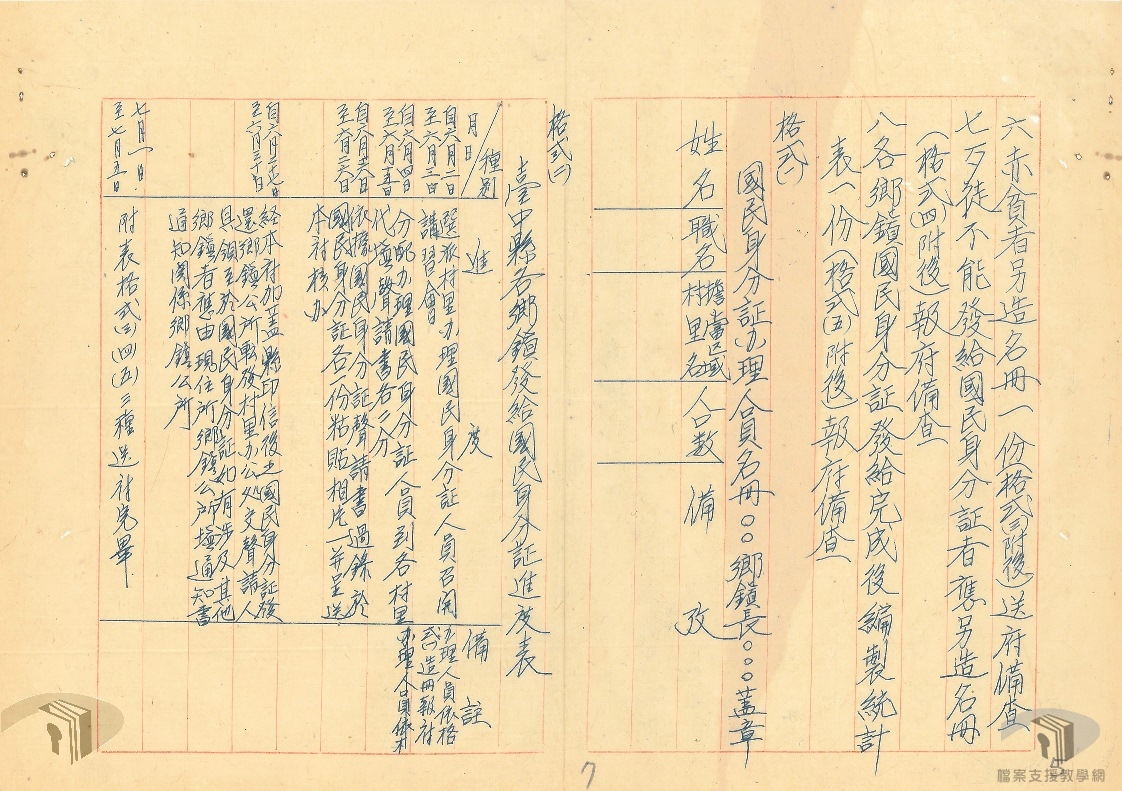 六赤貧者另造名冊一份(格式(三)附後)送府備查
七歹徒不能發給國民身分証者應另造名冊
(格式(四)附後)報府備查
八各鄉鎮國民身分証發給完成後編製統計
表一份(格式(五)附後)報府備查
格式(一)
國民身分証办理人員名冊○○鄉鎮長○○○蓋章
姓名
職名
擔當区域
村里名
人合数
備攷
格式(二)
臺中縣各鄉鎮發給國民身分証進度表
月日
種別
進度
備註
自六月二日
至六月三日
選派村里办理國民身分証人員召開
講習會
办理人員依格
式(一)造冊報府
自六月四日
至六月五日
分配办理國民身分証人員到各村里
代填聲請書各二分
自六月六日
至六月二六日
依據國民身分証聲請書過錄於
國民身分証各一份粘貼相片一并呈送
本府核办
自六月二七日
至六月三十日
經本府加蓋縣印信後之國民身分証發
還鄉鎮公所轉發村里办公处交聲請人
具領至於國民身分証如有涉及其他
鄉鎮者應由現住所鄉鎮公所填通知書
通知関係鄉鎮公所
七月一日
至七月五日
附表格式(三)(四)(五)三種送府完畢
7
檔案支援教學網